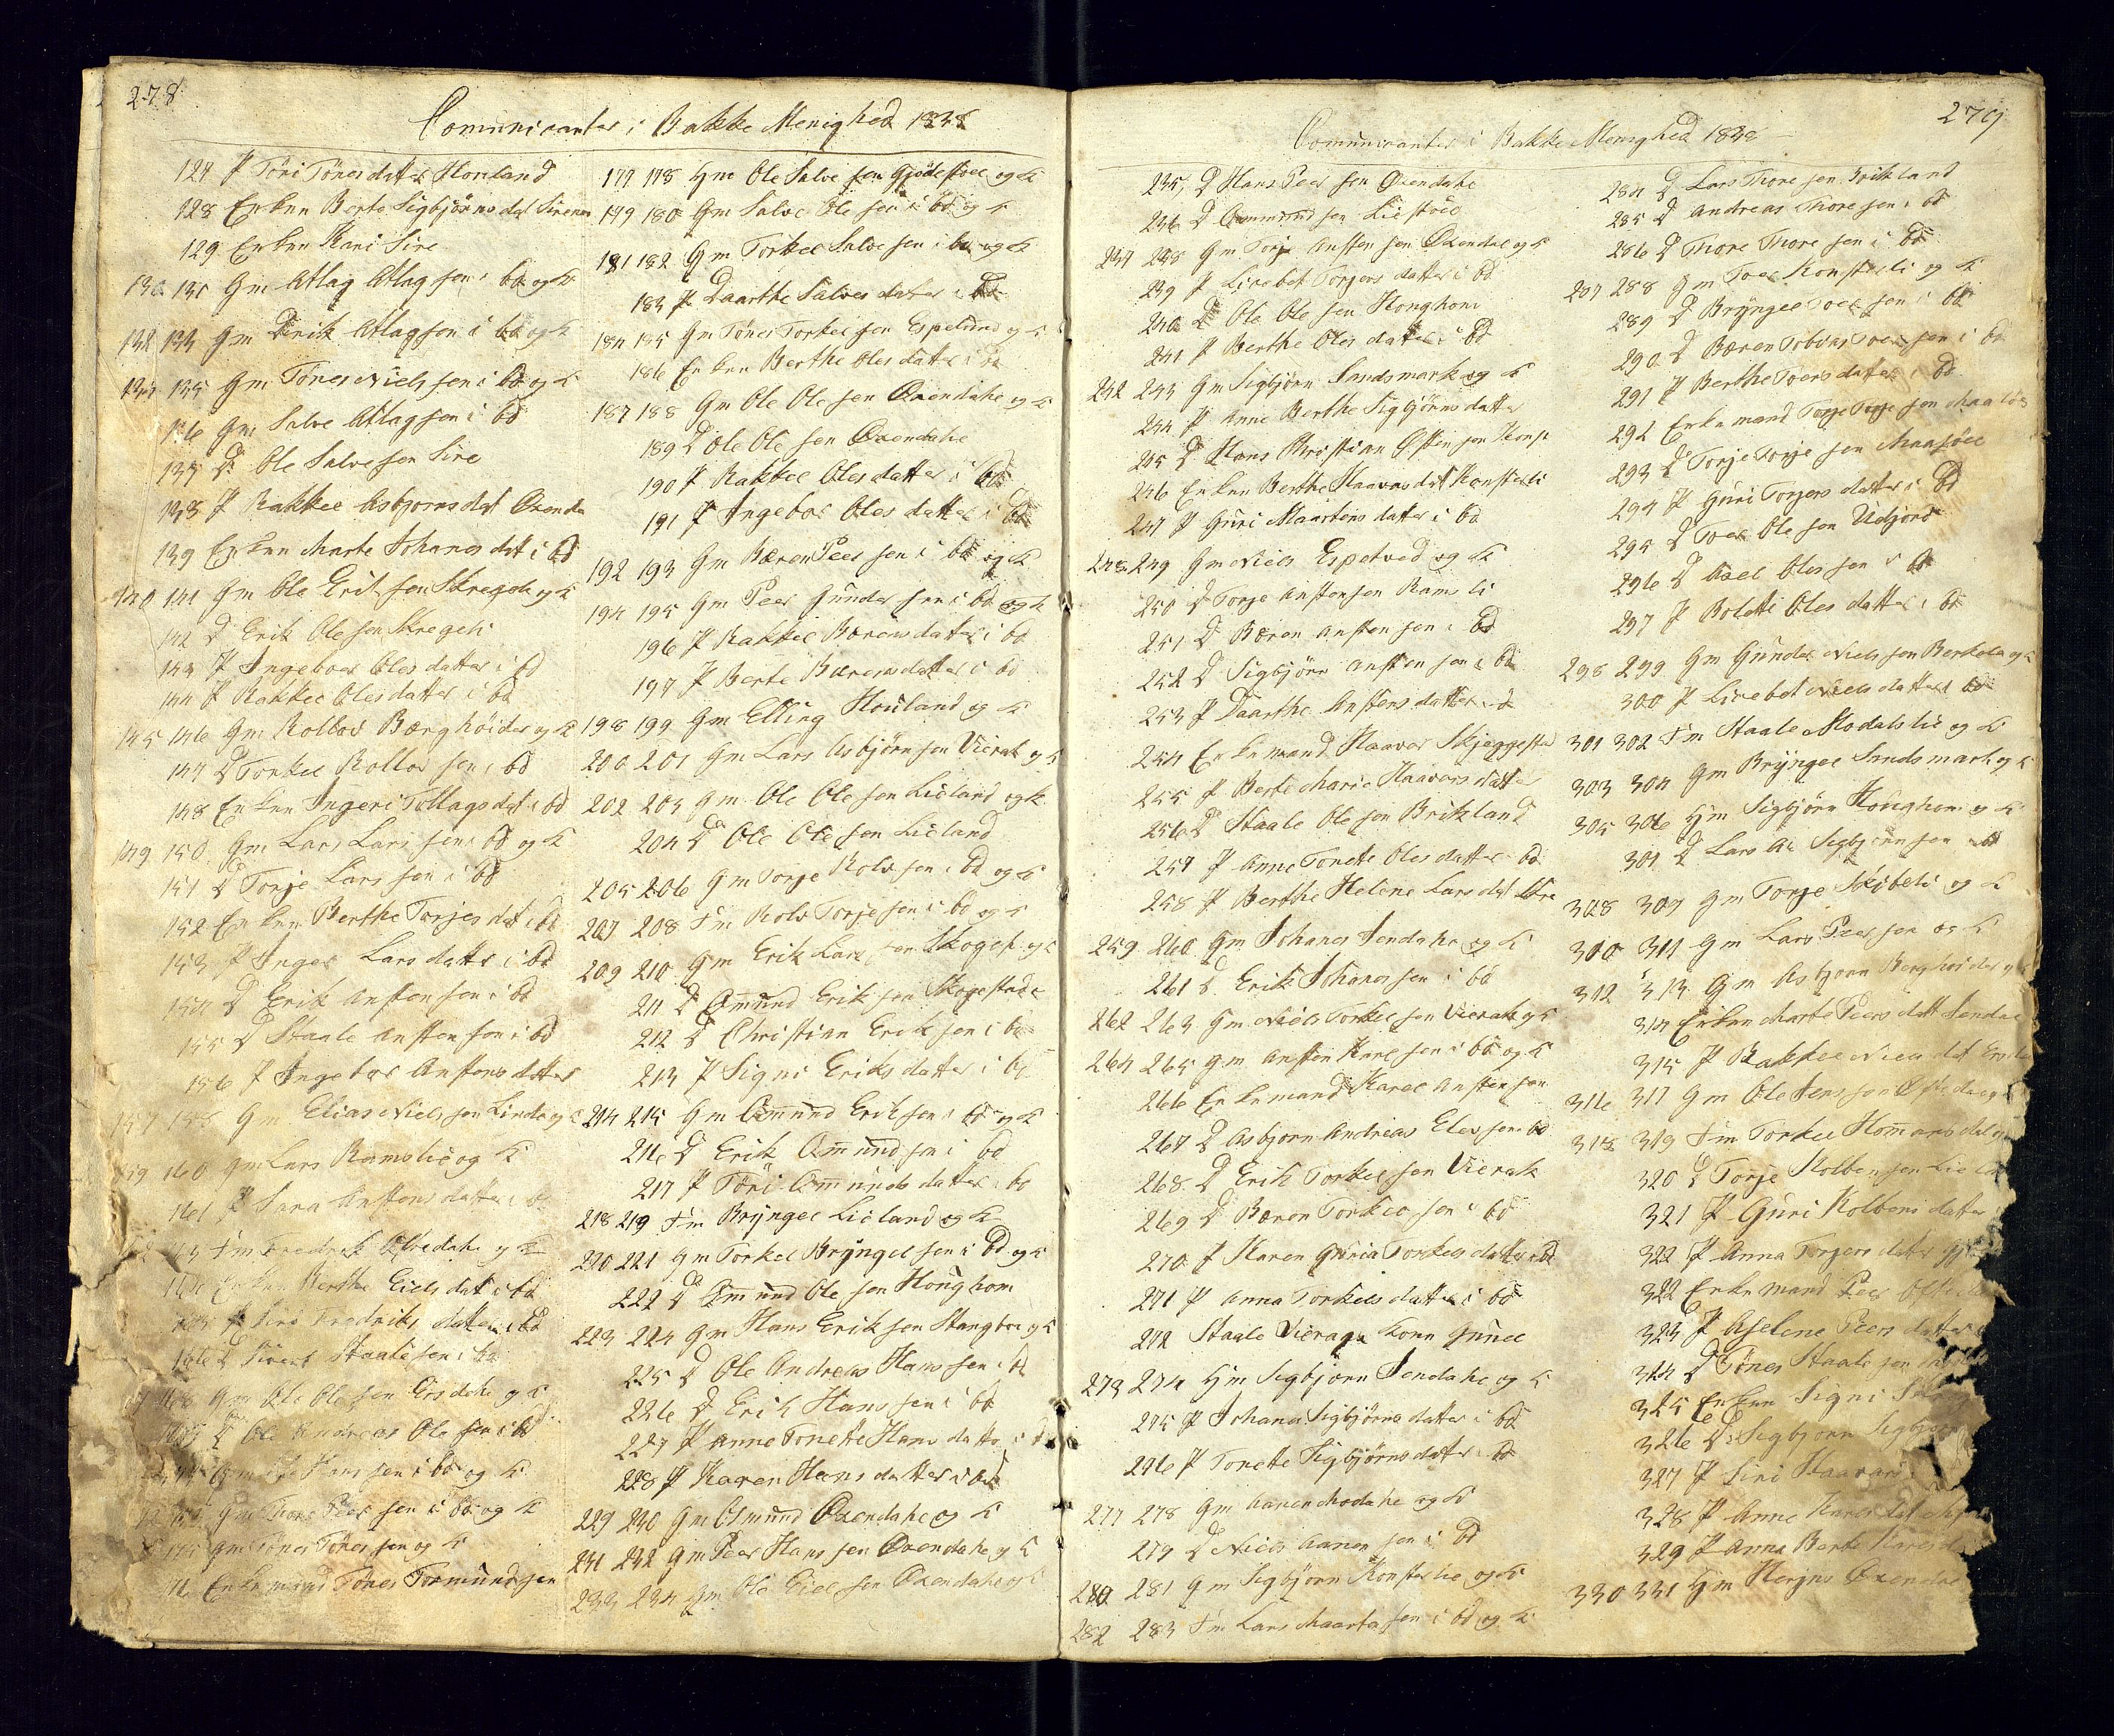 278
Comunicanter i Bakke Menighed 1838
127 P Töri Tönesdatter Houland
128 Enken Berte Sigbjörnsdat Sirenes
129 Enken Kari Sire
130 131 Gm Atlag Atlagsen i bd og K
132 133 Gm Erik Atlagsen i bd og K
135 Gm Tönes Nielssen i bd og K
136 Gm Salve Atlagsen i bd
137 D Ole Salvesen Sire
138 P Rakkel Asbjornsdat Oxenda
139 Enken Marte Johanesdatt i bd
140 141 Gm Ole Eriksen Skregeli og K
142 D Erik Olesen Skregeli
143 P Ingeboer Olesdatter i bd
144 P Rakkel Olesdatter i bd
145 146 Gm Rollov Bærghöider og K
147 D Torkel Rollovsen i bd
148 Enken Ingeri Tollagsdat i bd
149 150 Gm Lars Larssen i bd og K
151 D Torje Larssen i bd
152 Enken Berthe Torjesdat i bd
153 P Inger Larsdatter i bd
154 D Erik Anstensen i bd
155 D Staale Anstensen i bd
156 P Ingebor Anstensdatter
157 158 Gm Elias Nielssen Linda og K
159 160 Gm Lars Ramslie og K
161 P Sara Anstensdatter i bd
163 Fm Fredrik Oftedahe og K
Enken Berthe Eielsdat i bd
P Siri Fredriksdatter i bd
166 D Sivert Staalesen i bd
168 Gm Ole Olesen Ersdahe og K
D Ole Andreas Olesen i bd
Gm Hanssen i bd og K
Gm Thore Peersen i bd og K
175 Gm Tönes Tönessen og K
Enkemand Tönes Tormundsen
177 178 Hm Ole Salvesen Gjödestoel og K
179 180 Gm Salve Olesen i bd og K
181 182 Gm Torkel Salvesen i bd og K
183 P Daarthe Salvesdatter i bd
184 185 Gm Tönes Torkelsen Espelund og K
186 Enken Berthe Olesdatter i bd
187 188 Gm Ole Olesen Oxendahe og K
189 D Ole Olesen Oxendahe
190 P Rakkel Olesdatter i bd
191 P Ingebor Olesdatter i bd
192 193 Gm Bæren Peersen i bd og K
194 195 Gm Peer Gundersen i bd og K
196 P Rakkel Bærensdatter i bd
197 P Berte Bærensdatter i bd
198 199 Gm Elling Houland og K
200 201 Gm Lars Asbjörnsen Vierak og K
202 203 Gm Ole Olesen Lieland og K
204 D Ole Olesen Lieland
205 206 Gm Torje Rolvsen i bd og K
207 208 Fm Rolv Torjesen i bd og K
209 210 Gm Erik Larssen Skogest og K
211 D Omund Eriksen Skogestade
212 D Christian Eriksen i bd
213 P Signi Eriksdatter i bd
214 215 Gm Omund Eriksen i bd og K
216 D Erik Omundsen i bd
217 P Töri Omundsdatter i bd
218 219 Fm Bryngel Lieland og K
220 221 Gm Torkel Bryngelsen i bd og K
222 D Omund Olesen Houghom
223 224 Gm Hans Eriksen Stangboe og K
225 D Ole Andreas Hanssen i bd
226 D Erik Hanssen i bd
227 P Anne Tonette Hansdatter i bd
228 P Karen Hansdatter i bd
229 230 Gm Osmund Oxendahe og K
231 232 Gm Peer Hanssen Oxendahe og K
233 234 Gm Ole Eielsen Oxendahe og K
279
Comunicanter i Bakke Menighed 1838
235 D Hans Peersen Oxendahe
236 D Ommundsen Liestöed
237 238 Gm Torje Anstensen Oxendal og K
239 P Lisebet Torjersdatter i bd
240 D Ole Olesen Houghom
241 P Berthe Olesdatter i bd
242 243 Gm Sigbjörn Sandsmark og K
244 P Anne Berthe Sigbjörnsdatter
245 D Hans Christian Østensen Konst
246 Enken Berthe Haavorsdat Konsterli
247 P Guri Maartensdatter i bd
248 249 Gm Niels Espetved og K
250 D Torje Anstensen Ramsli
251 D Bæren Anstensen i bd
252 D Sigbjörn Anstensen i bd
253 P Daarthe Anstensdatter i bd
254 Enkemand Haavor Skjeggestad
255 P Berte Marie Haavorsdatter
256 D Staale Olesen Brikland
257 P Anne Tonette Olesdatter bd
258 P Berthe Helene Larsdat Sire
259 260 Gm Johanes Sendahe og K
261 D Erik Johanessen i bd
262 263 Gm Niels Torkelsen Vierak og K
264 265 Gm Ansten Karelsen i bd og K
266 Enkemand Karel Anstensen
267 D Asbjorn Andreas Elessen bd
268 D Erik Torkelsen Vierak
269 D Bæren Torkelsen i bd
270 P Karen Guria Torkelsdatter i bd
271 P Anna Torkelsdatter i bd
272 Staale Vieraks Kone Gunel
273 274 Hm Sigbjorn Sendahe og K
275 P Johane Sigbjörnsdatter i bd
276 P Tonette Sigbjörnsdatter i bd
277 278 Gm Aanen Modahe og K
279 D Niels Aanensen i bd
280 281 Gm Sigbjörn Konsterlie og K
282 283 Fm Lars Maartensen i bd og K
284 D Lars Thoresen Brikland
285 D Andreas Thoresen i bd
286 D Thore Thoresen i bd
287 288 Gm Toer Konsterli og K
289 D Bryngel Toersen i bd
290 D Bæren Tobias Toersen i bd
291 P Berthe Toersdatter i bd
292 Enkemand Torje Torjesen
293 D Torje Torjesen
294 P Guri Torjersdatter i bd
295 D Toer Olesen Udjord
296 D Axel Olessen i bd
297 P Boletti Olesdatter i bd
298 299 Gm Gunder Nielssen Berkela og K
300 P Lisebet Nielsdatter bd
301 302 Fm Staale Modalslie og K
303 304 Gm Bryngel Sandsmark og K
305 306 Hm Sigbjörn Houghom og K
301 D Lars Sigbjörnsen bd
308 309 Gm Torje Skibeli og K
300 311 Gm Lars Peersen og K
312 313 Gm Asbjorn Berghöider og
314 Enken Marte Peersdatt Sendae
315 P Rakkel Nielsdat
316 317 Gm Ole Jenssen
318 319 Fm Torkel
320 D Torje Kolbensen
321 P Guri Kolbensdatter
322 P Anna Torjersdatter
322 Enkemand Peer
323 P Aselene Peersdatter
324 D Tönes Staalesen
325 Enken Signi
326 D Sigbjorn Sigbjor
327 P Siri Haavors
328 P Anne Karelsdat
329 P Anna Berte Karelsd
330 331 Hm Oxendae